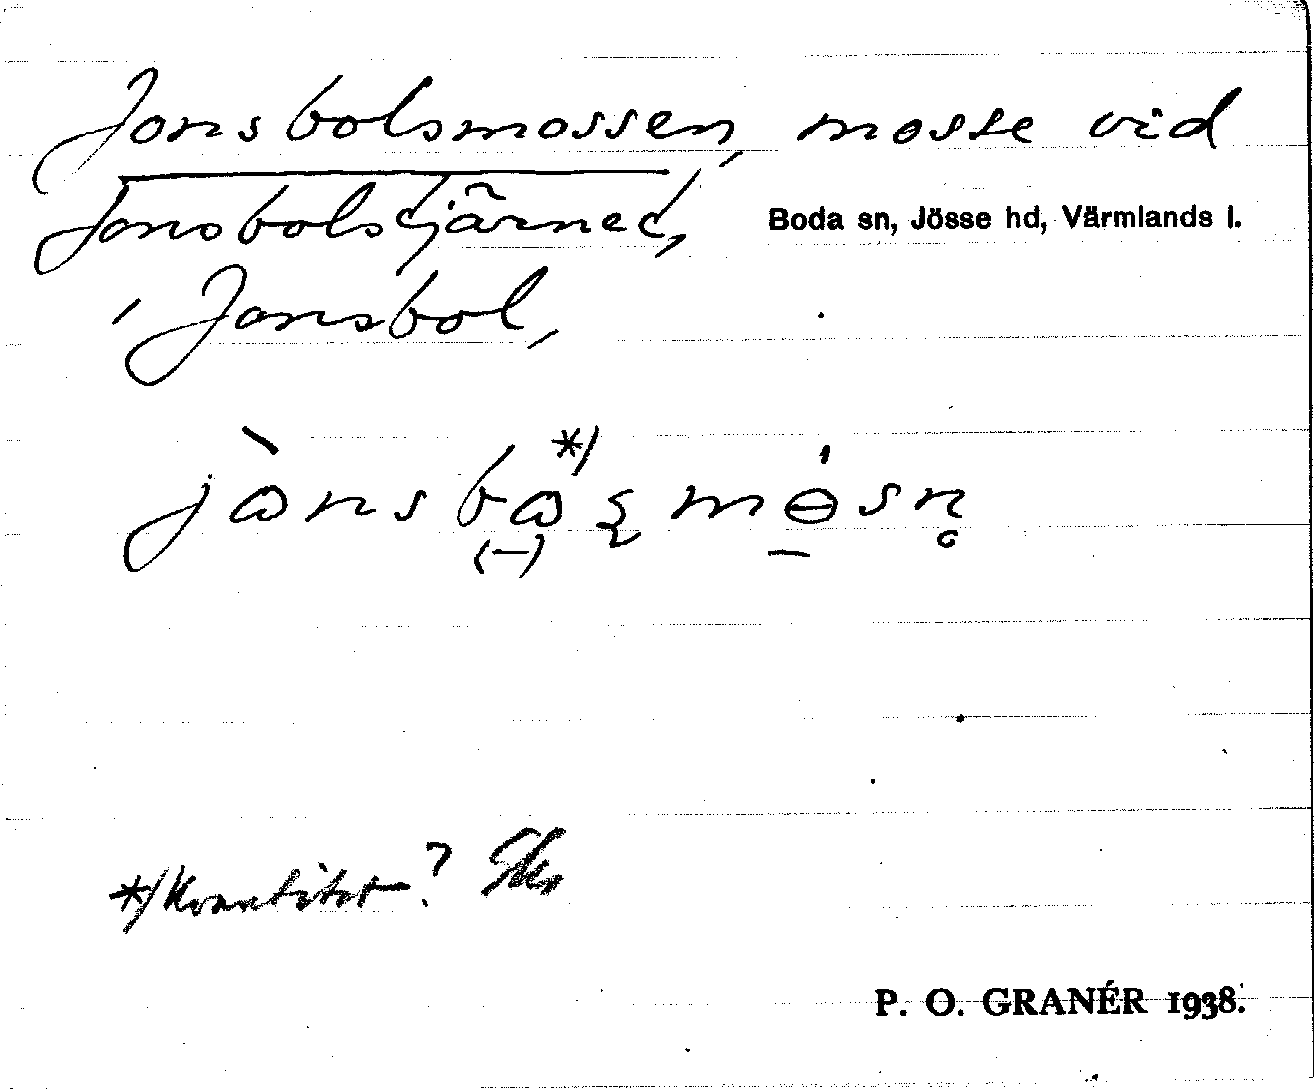 Jonsbolsmossen, mosse vid
Jonsbolstjärnet,
Boda sn, Jösse hd, Värmlands l.
, Jonsbol,
*/ Kvantitet?
P. O. GRANÉR 1938.